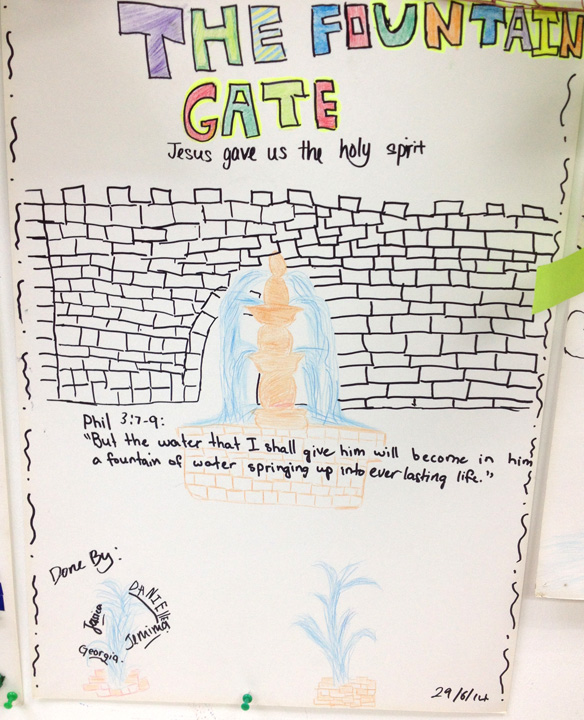 THE FOUNTAIN
GATE
Jesus gave us the holy spirit
Phil 3:7-9:
"But the water that I shall give him will become in him
a fountain of water springing up into everlasting life."
Done By:
DANIELLE
Jessica
Jemima
Georgia.
29/6/14